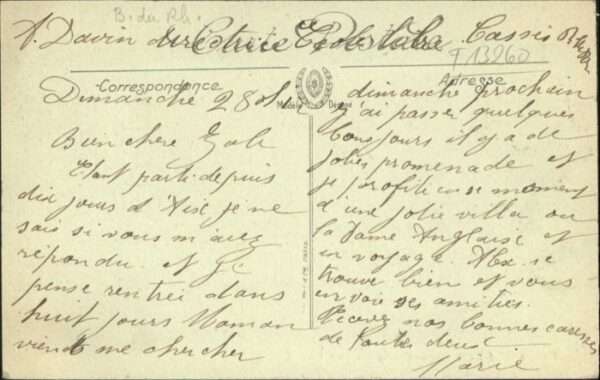 B. du Rh.
A. Davin directrice Cassis B. du Rh
T 13260
Correspondance
Adresse
Modèle Déposé
Dimanche 28
Bien chère
Etant partie depuis
dix jours d'Aix je ne
sais si vous m'avez
répondu. et je
pense rentrer dans
huit jours Maman
viendra me chercher
dimanche prochain
j'ai passer quelques
bons jours il y a de
jolies promenade et
je profite en ce moment
d'une jolie villa ou
la Dame Anglaise est
en voyage. Alex. se
trouve bien et vous
envoie ses amities.
Recevez nos bonnes caresses
de toutes deux
Marie